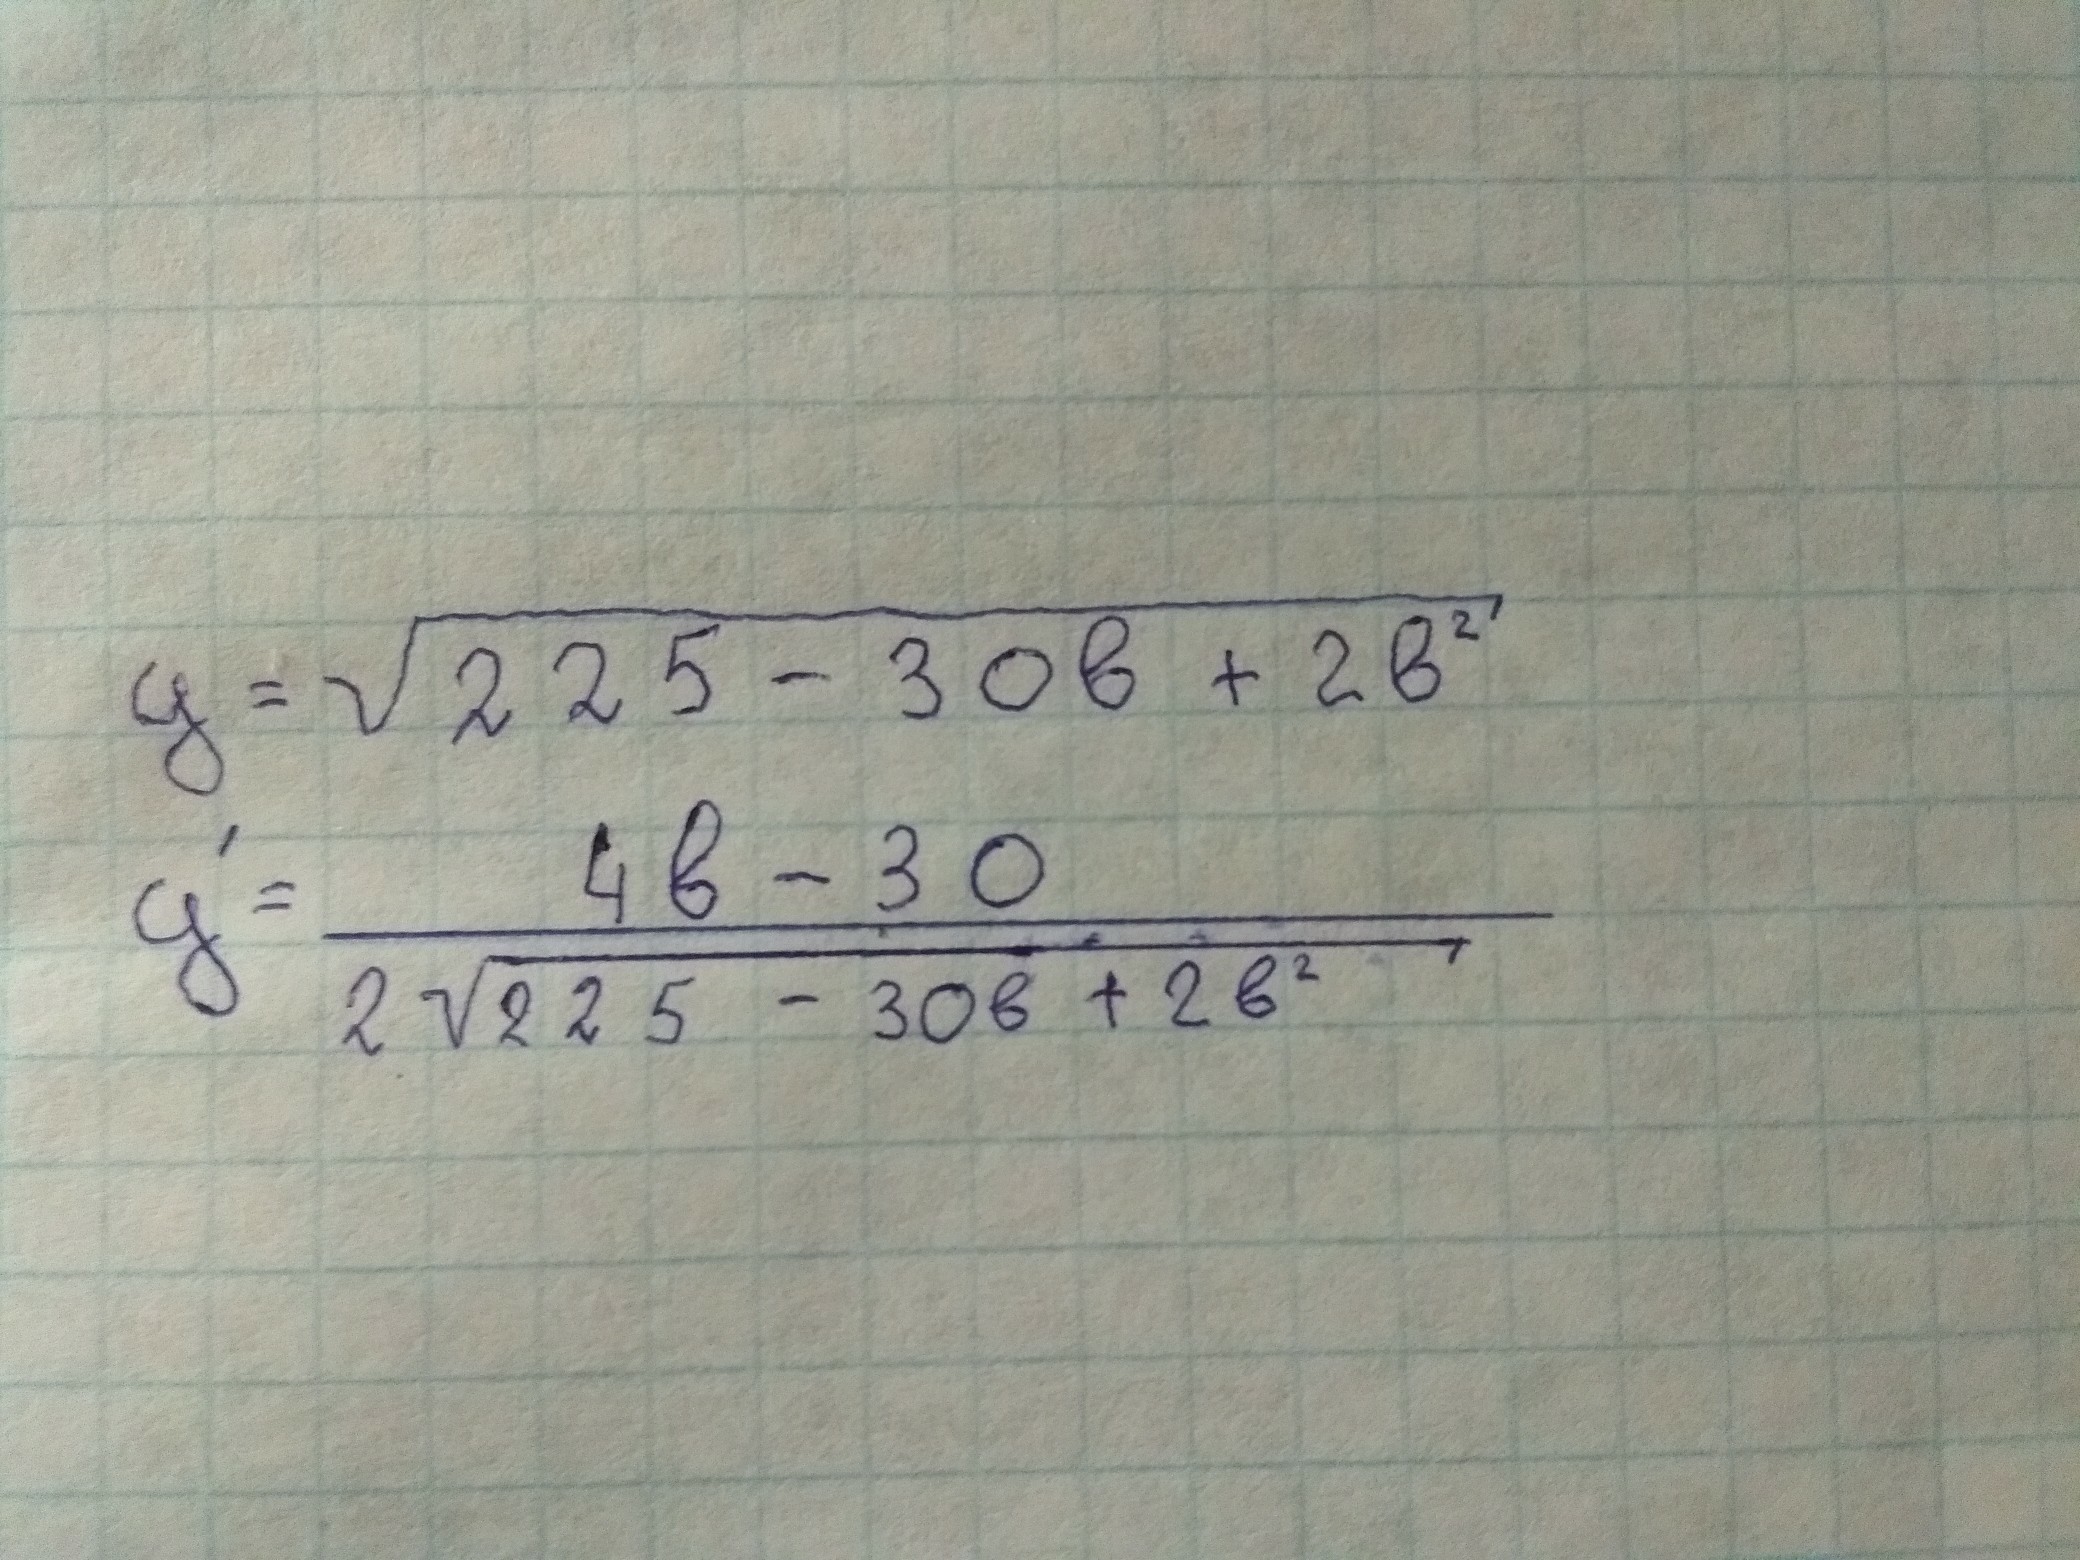 y = √225 - 30в + 2в²
y' = (4в - 30) / (2√225 - 30в + 2в²)